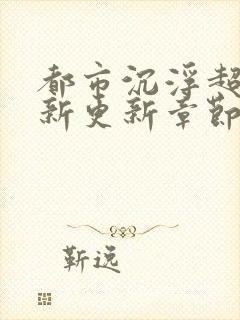 都市沉浮超
新更新章節
靳远